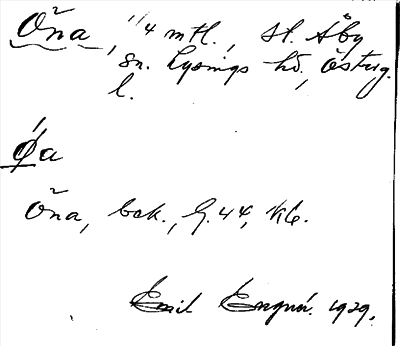 Öna, 1/4 mtl., St. Åby
sn. Lysings hd., Österg.
l.
Øa
Öna, bok., G. 44, K6.
Emil 1929.